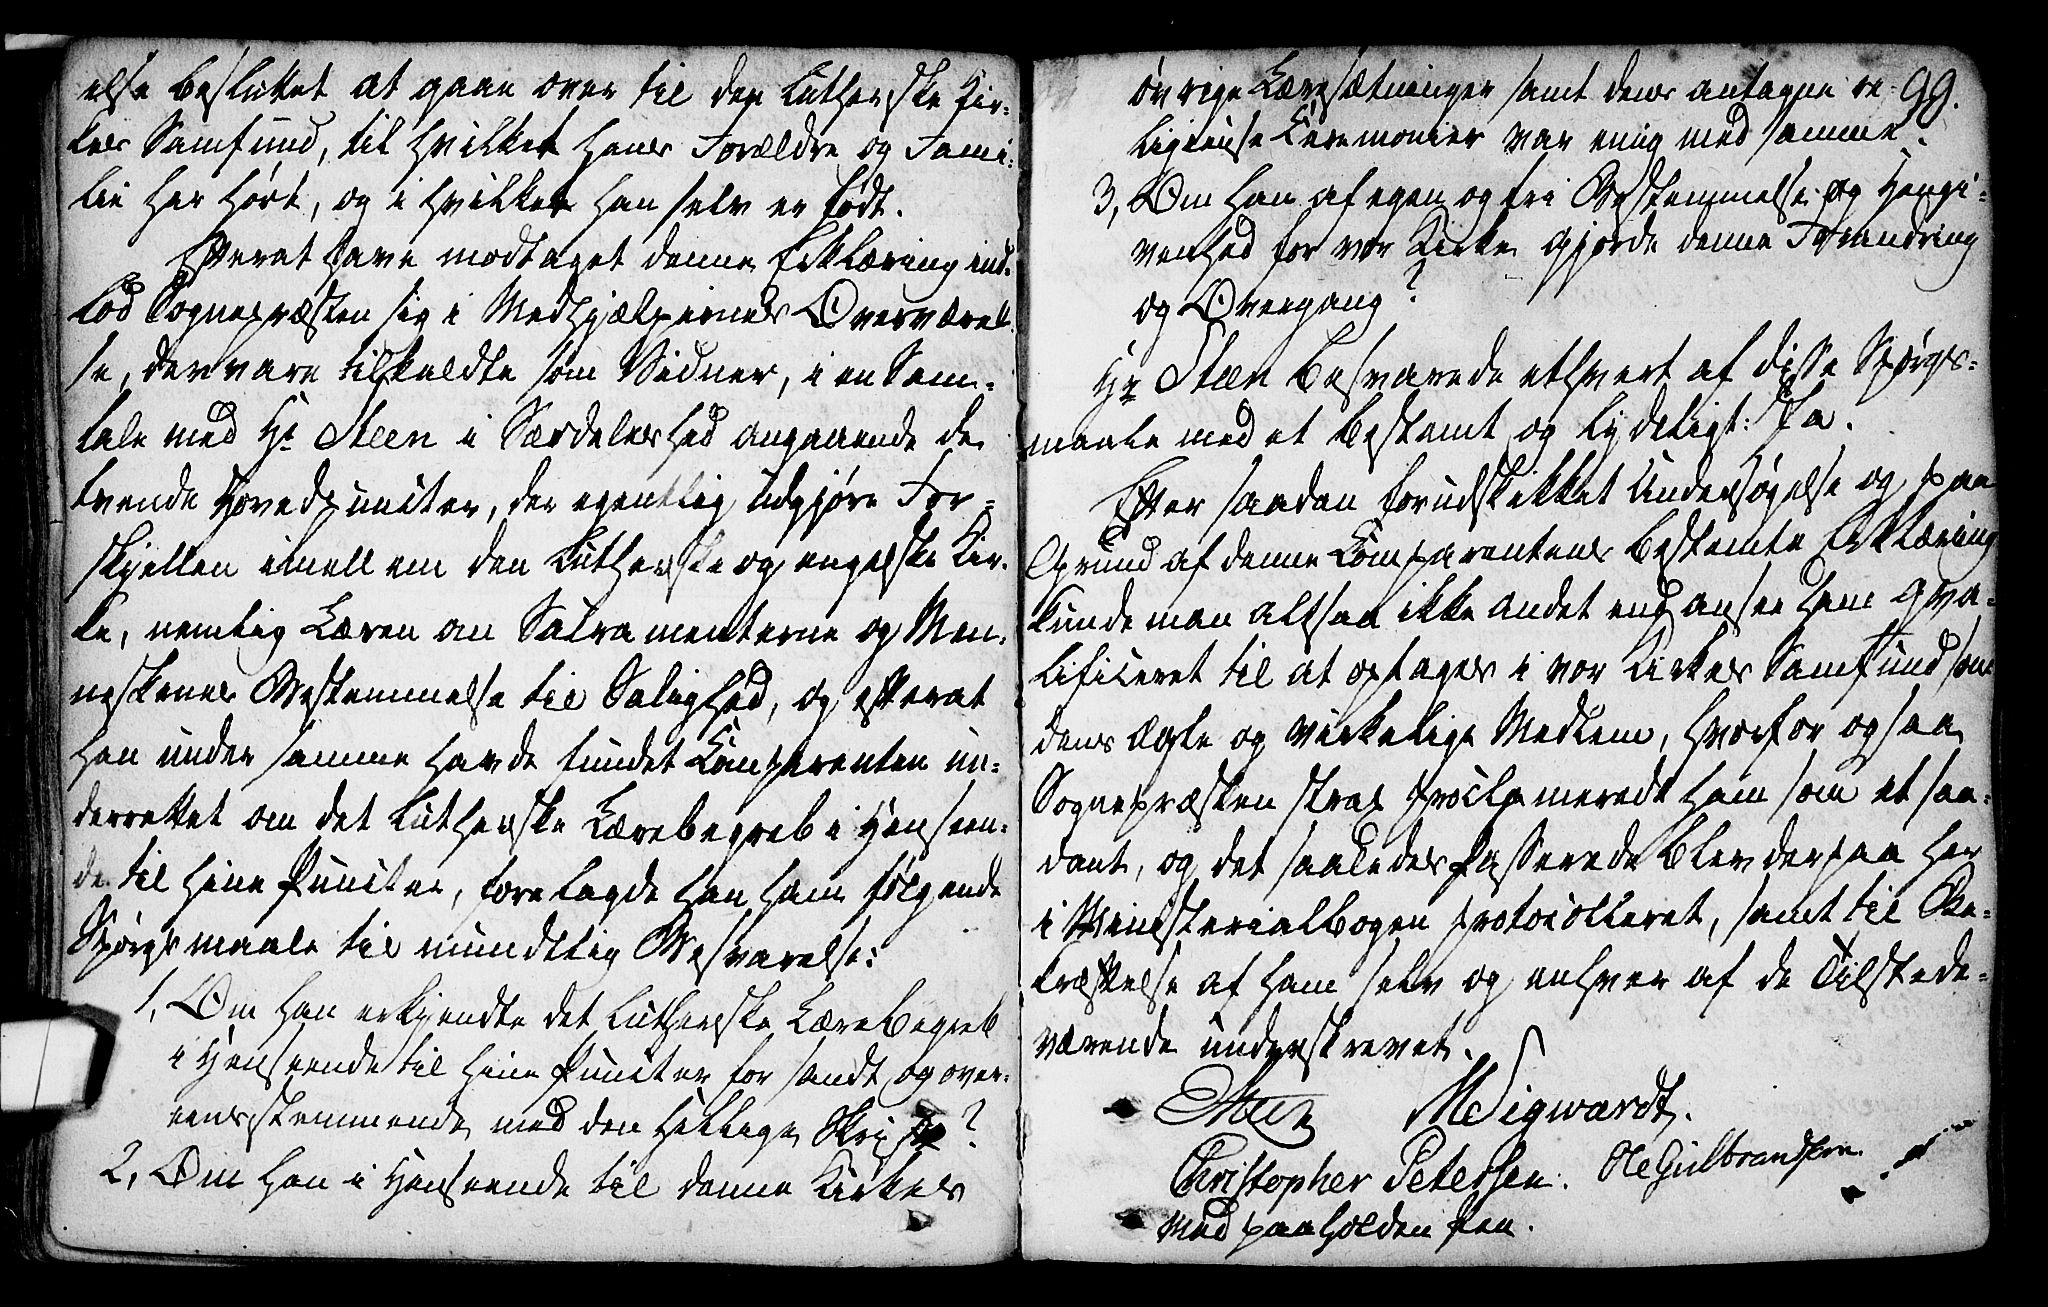 else besluttet at gaae over til den Lutherske Kir-
kes Samfund, til hvilket hans Forældre og Fami-
lie har hørt, og i hvilket han selv er født.
Efterat have modtaget denne Erklæring ind-
lod Sognepræsten sig i Medhjælpernes Overværel-
se, der vare tilkaldte som Vidner, i en Sam-
tale med Hr Steen i Særdeleshed angaaende de
tvende Hovedpuncter, der egentlig udgjøre For-
skjellen imellem den Lutherske og engelske Kir-
ke, nemlig Læren om Sakramenterne og Men-
neskenes Bestemmelse til Salighed, og efterat
han under samme havde fundet Comparenten un-
derrettet om det Lutherske Lærebegreb i Henseen-
de til hine Puncter, forelagde han ham følgende
Spørgsmaale til mundtlig Besvarelse:
1, Om han erkjendte det Lutherske Lærebegreb
i Henseende til hine Puncter for sandt og over-
eensstemmende med den hellige Skrift?
2, Om han i Henseende til denne Kirkes
99.
øvrige Læresætninger samt dens antagne re-
ligieuse Ceremonier var enig med samme.
3, Om han af egen og fri Bestemmelse og Hengi-
venhed for vor Kirke gjorde denne Forandring
og Overgang?
Hr Steen besvarede ethvert af disse Spørgs-
maale med et bestemt og tydeligt: Ja.
Efter saadan forudskikket Undersøgelse og paa
Grund af denne Comparentens bestemte Erklæring
kunde man altsaa ikke andet end ansee ham qva-
lificeret til at optages i vor Kirkes Samfund som
dens ægte og virkelige Medlem, hvorfor ogsaa
Sognepræsten strax proclamerede ham som et saa-
dant, og det saaledes passerede blev derpaa her
i Ministerialbogen protocolleret, samt til Be-
kræftelse af ham selv og enhver af de Tilstede-
værende underskrevet.
Steen MSigwardt.
Christopher Petersen. Ole Gulbrandsen
med paaholden Pen.